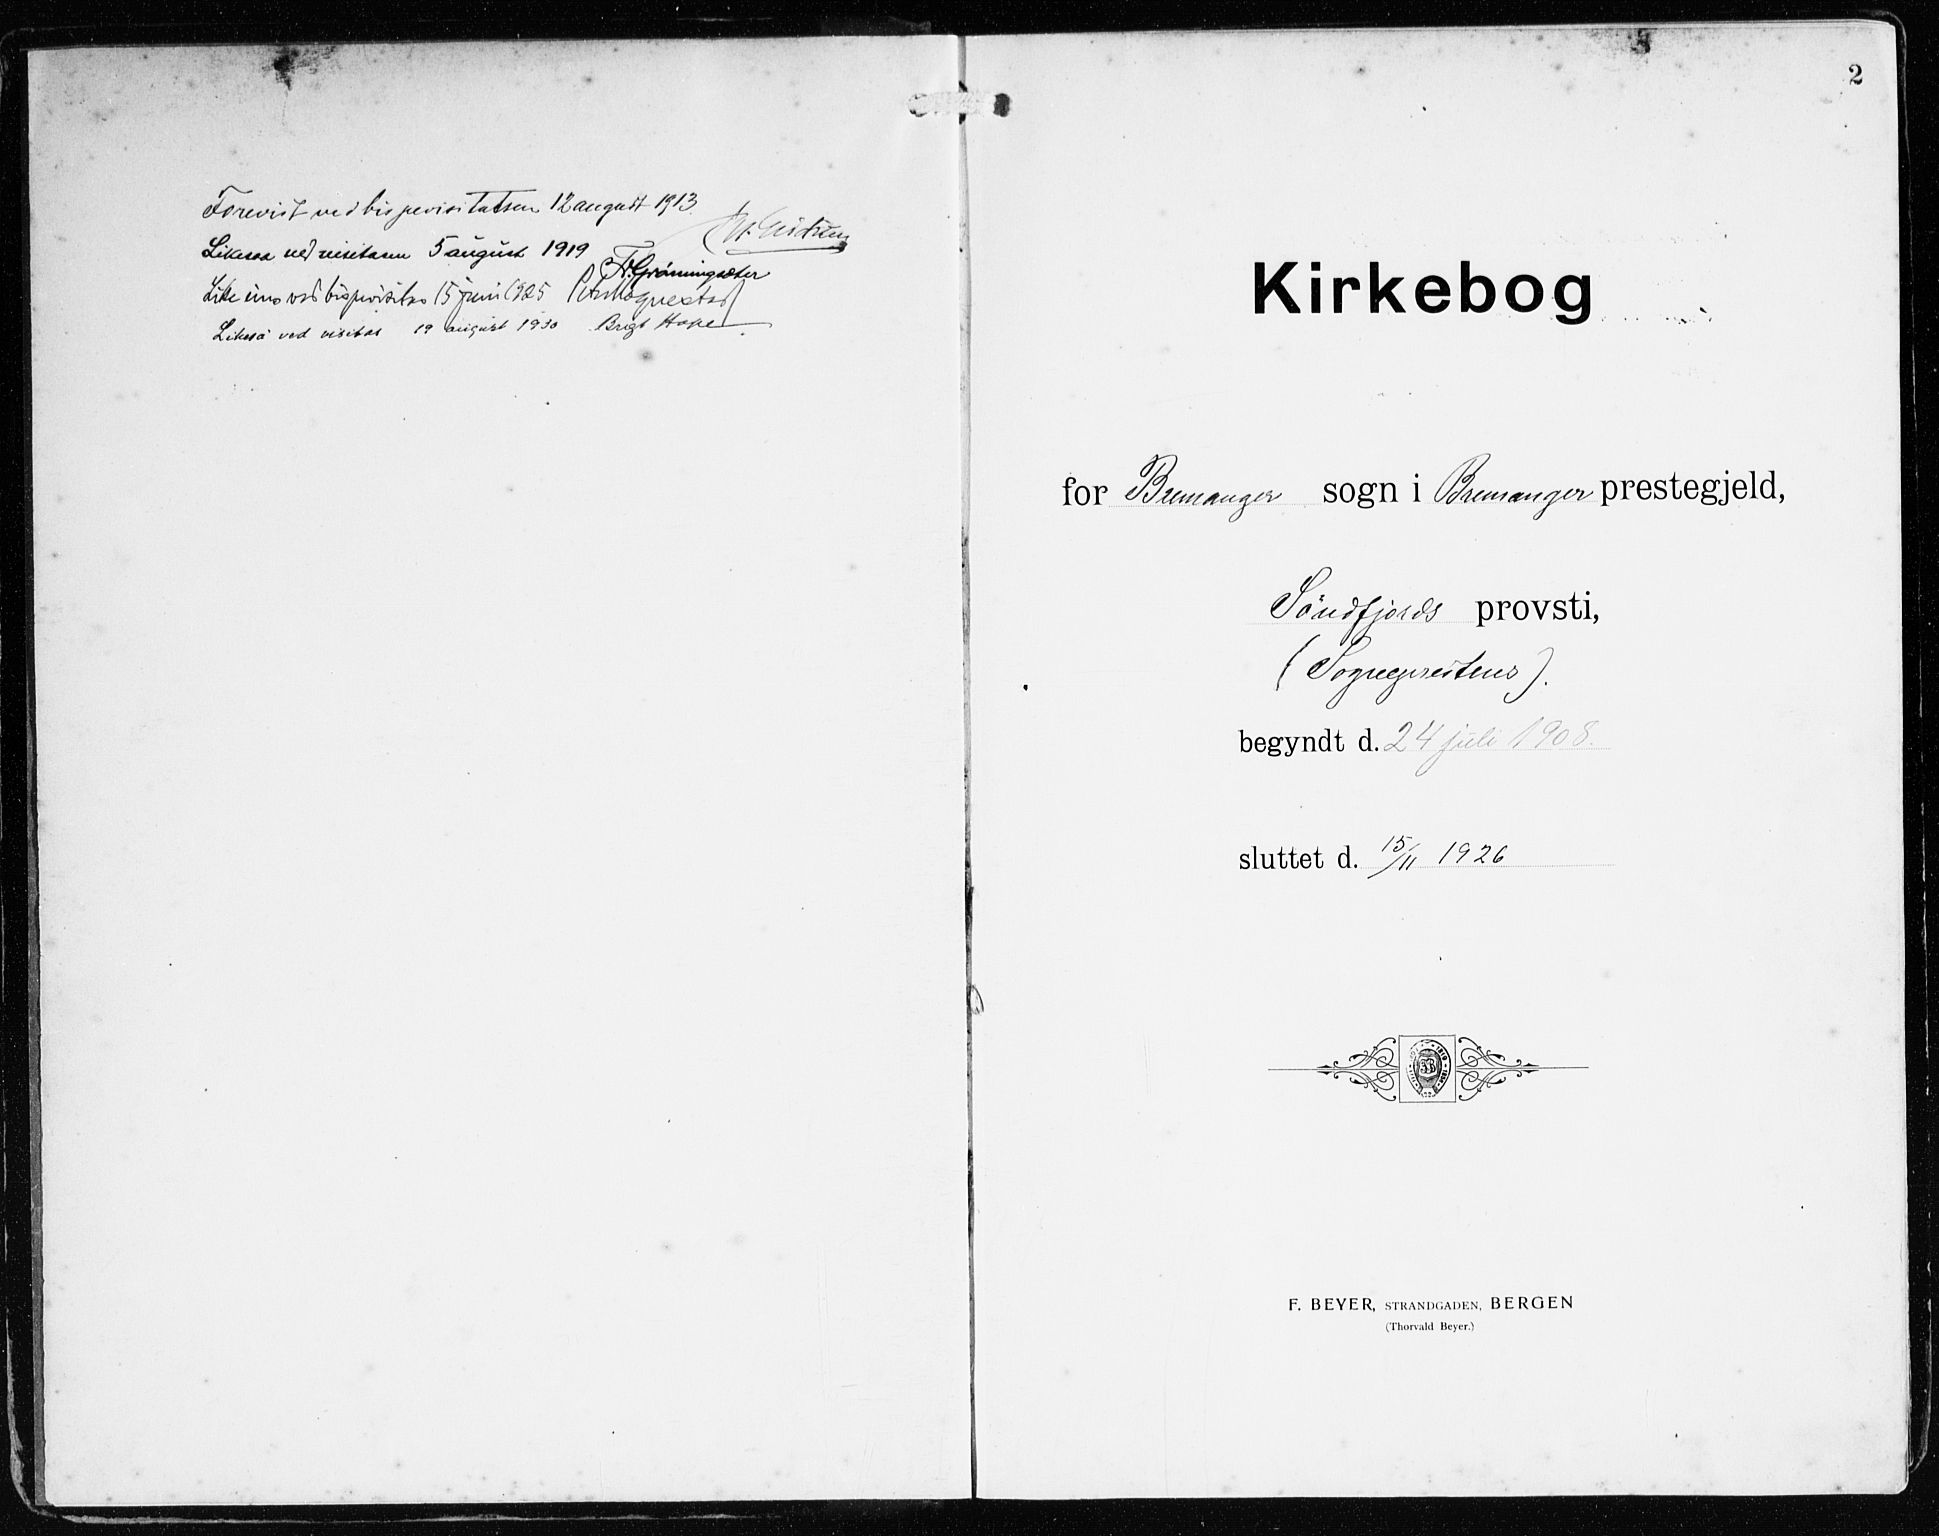 Forevist ved bispevisitatsen 12 august 1913.
Likesaa ved visitasen 5 august 1919 Fr. Grönningsæter
Likeens ved bispevisitas 15 juni 1925 Peter Hognestad
Likeså ved visitas 19 august 1930 Brigt Hope
2
Kirkebog
for Bremanger sogn i Bremanger prestegjeld,
Söndfjords provsti,
(Sogneprestens).
begyndt d. 24 juli 1908.
sluttet d. 15/11 1926
F. BEYER, STRANDGADEN, BERGEN
(Thorvald Beyer.)